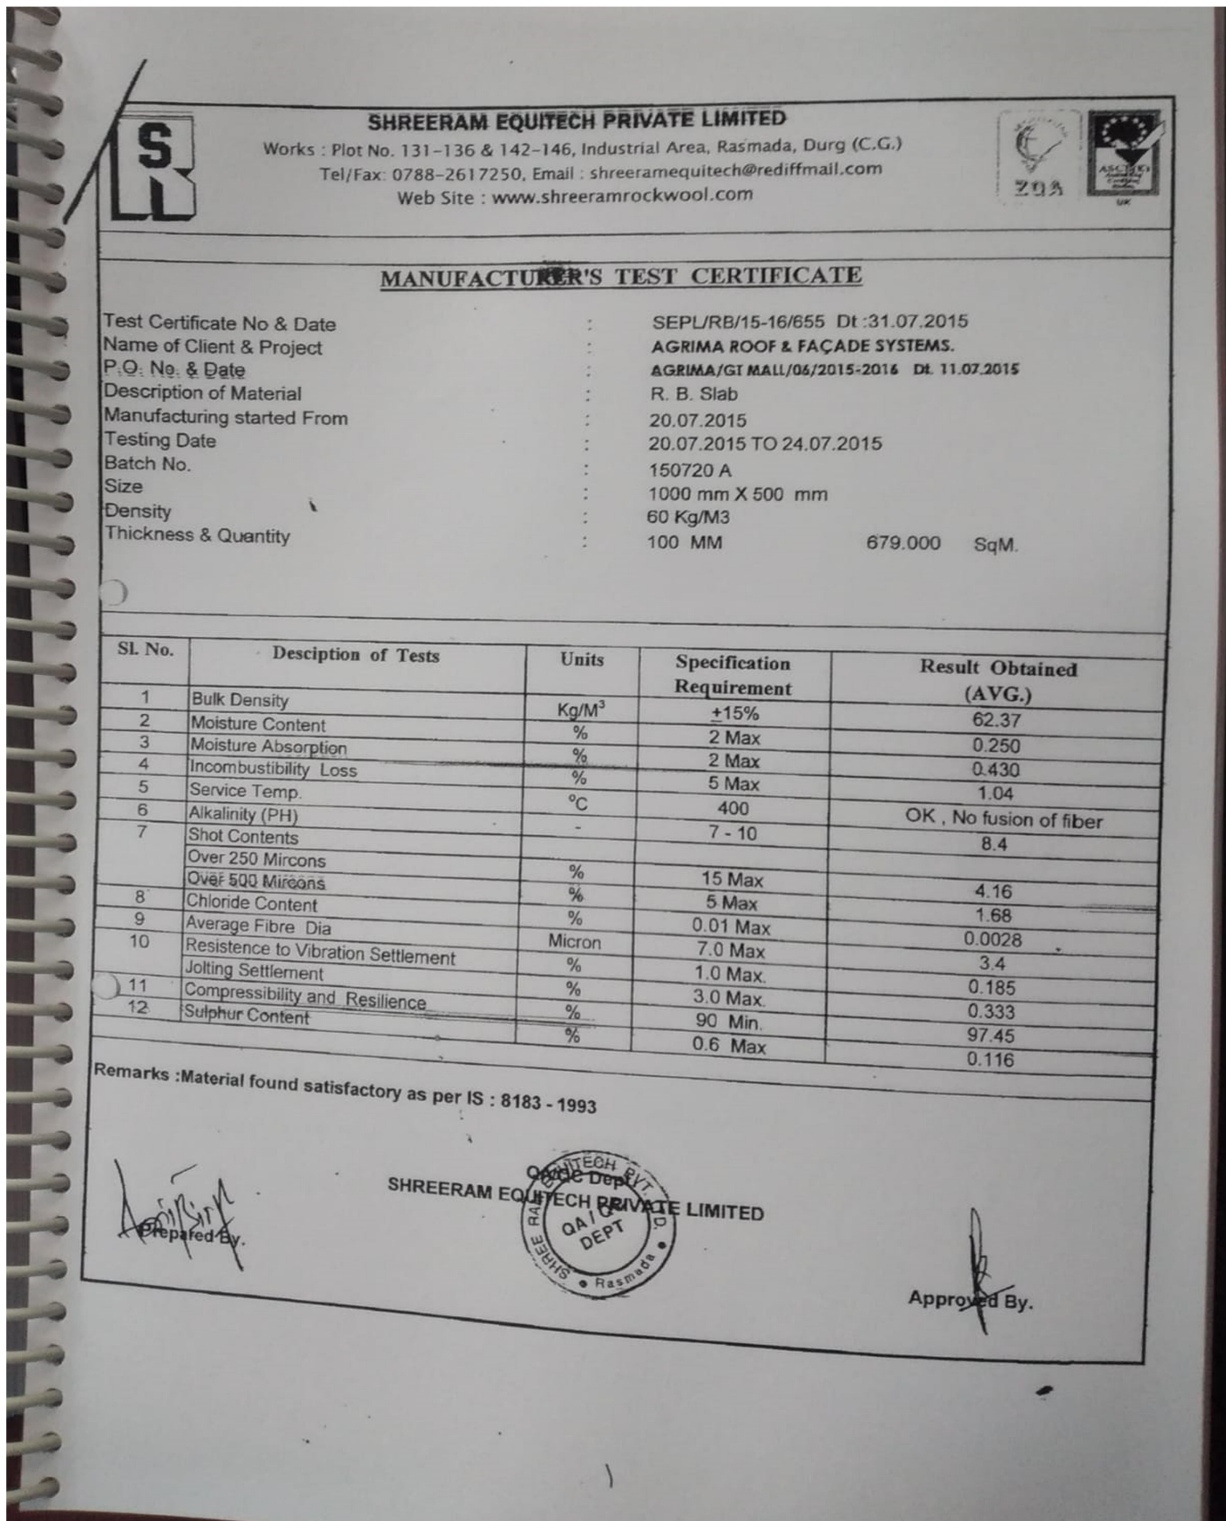 SR
SHREERAM EQUITECH PRIVATE LIMITED
Works : Plot No. 131-136 & 142-146, Industrial Area, Rasmada, Durg (C.G.)
Tel/Fax: 0788-2617250, Email : shreeramequitech@rediffmail.com
Web Site : www.shreeramrockwool.com
ZQA
UK
MANUFACTURER'S TEST CERTIFICATE
Test Certificate No & Date : SEPL/RB/15-16/655 Dt :31.07.2015
Name of Client & Project : AGRIMA ROOF & FAÇADE SYSTEMS.
P.O. No. & Date : AGRIMA/GT MALL/06/2015-2016 Dt. 11.07.2015
Description of Material : R. B. Slab
Manufacturing started From : 20.07.2015
Testing Date : 20.07.2015 TO 24.07.2015
Batch No. : 150720 A
Size : 1000 mm X 500 mm
Density : 60 Kg/M3
Thickness & Quantity : 100 MM 679.000 SqM.
Sl. No. Desciption of Tests Units Specification Requirement Result Obtained (AVG.)
1 Bulk Density Kg/M³ ±15% 62.37
2 Moisture Content % 2 Max 0.250
3 Moisture Absorption % 2 Max 0.430
4 Incombustibility Loss % 5 Max 1.04
5 Service Temp. °C 400 OK , No fusion of fiber
6 Alkalinity (PH) - 7 - 10 8.4
7 Shot Contents
Over 250 Mircons % 15 Max 4.16
Over 500 Mircons % 5 Max 1.68
8 Chloride Content % 0.01 Max 0.0028
9 Average Fibre Dia Micron 7.0 Max 3.4
10 Resistence to Vibration Settlement % 1.0 Max. 0.185
Jolting Settlement % 3.0 Max. 0.333
11 Compressibility and Resilience % 90 Min. 97.45
12 Sulphur Content % 0.6 Max 0.116
Remarks :Material found satisfactory as per IS : 8183 - 1993
QA/QC Dept.
SHREERAM EQUITECH PRIVATE LIMITED
SHREE RAM EQUITECH PVT. LTD.
QA / QC
DEPT
Rasmada
Prepared By.
Approved By.